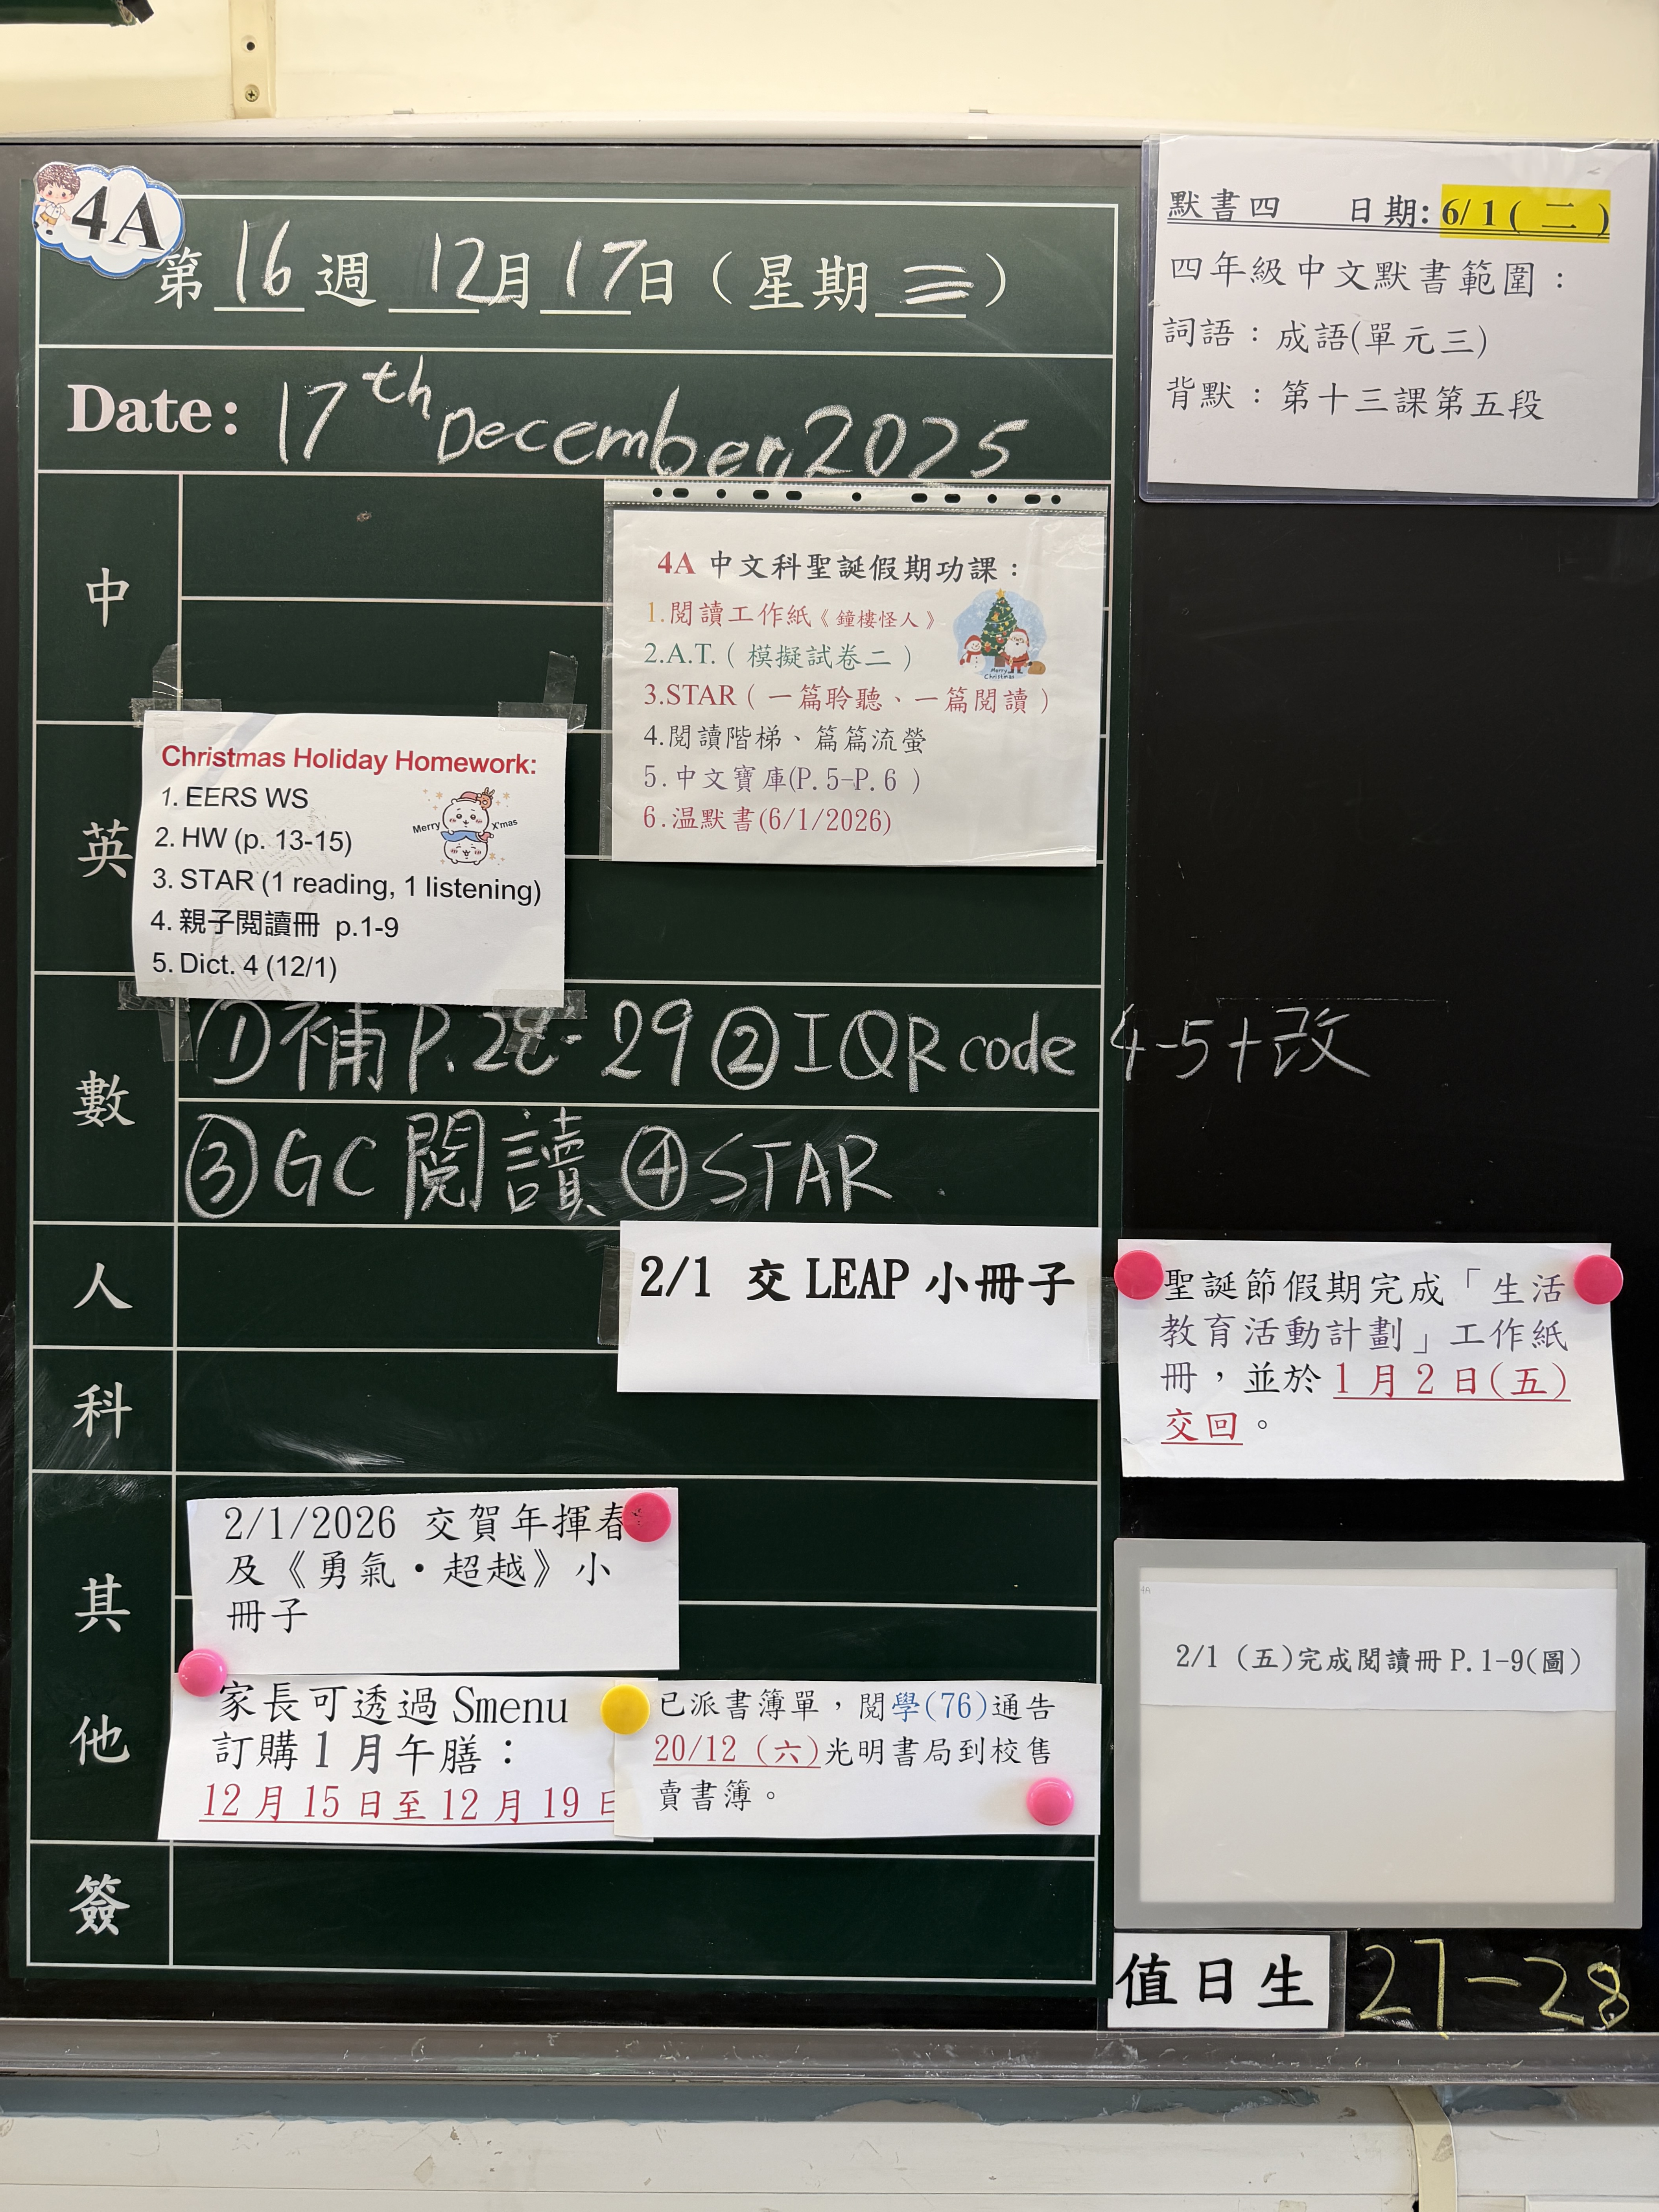 4A
第 16 週 12月17日（星期三）
Date: 17th December, 2025
中
4A 中文科聖誕假期功課：
1.閱讀工作紙《鐘樓怪人》
2.A.T.（模擬試卷二）
3.STAR（一篇聆聽、一篇閱讀）
4.閱讀階梯、篇篇流螢
5.中文寶庫(P.5-P.6 )
6.温默書(6/1/2026)
Merry
Christmas
英
Christmas Holiday Homework:
1. EERS WS
2. HW (p. 13-15)
3. STAR (1 reading, 1 listening)
4. 親子閱讀冊 p.1-9
5. Dict. 4 (12/1)
Merry X'mas
數
①補P.28-29②IQR code 4-5+改
③GC閱讀④STAR
人
2/1 交 LEAP 小冊子
科
其他
2/1/2026 交賀年揮春
及《勇氣・超越》小
冊子
家長可透過 Smenu
訂購 1 月午膳：
12 月 15 日至 12 月 19 日
已派書簿單，閱學(76)通告
20/12（六)光明書局到校售
賣書簿。
簽
默書四 日期: 6/1( 二 )
四年級中文默書範圍：
詞語：成語(單元三)
背默：第十三課第五段
聖誕節假期完成「生活
教育活動計劃」工作紙
冊，並於 1 月 2 日(五)
交回。
4A
2/1 (五)完成閱讀冊 P.1-9(圖)
值日生 27-28